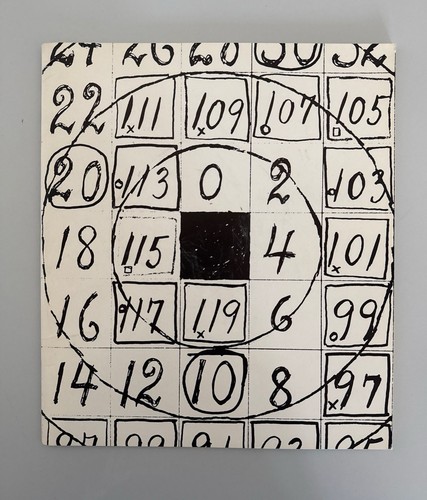 22 111 109 107 105
20 113 0 2 103
18 115 4 101
16 117 119 6 99
14 12 10 8 97